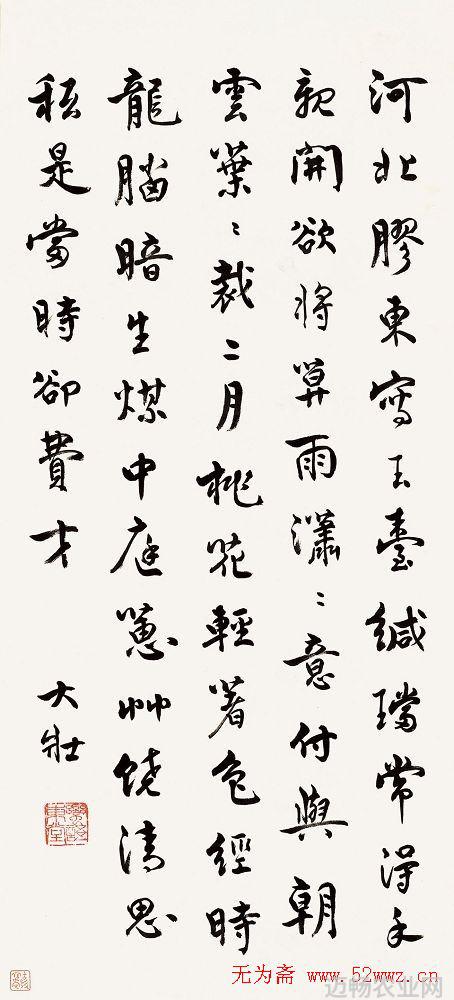 河北膠東寫玉臺緘璫常得手
親開欲將雨瀟〻意付與朝
雲葉〻裁二月桃花輕著色經時
龍腦暗生煤中庭蕙艸饒清思
秖是當時卻費才
大壯
无为斋 www.52wwz.cn
迈畅农业网